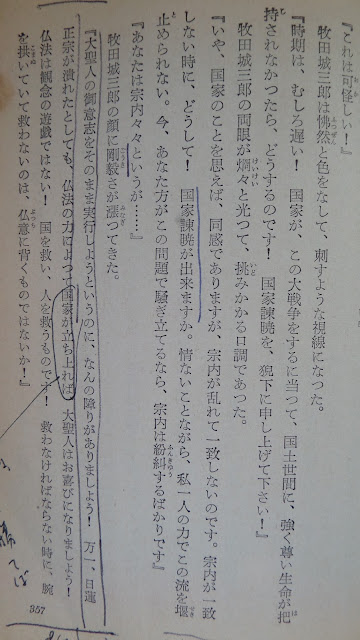 『これは可怪しい！』
牧田城三郎は怫然と色をなして、刺すような視線になつた。
『時期は、むしろ遅い！　国家が、この大戦争をするに当つて、国土世間に、強く尊い生命が把
持されなかつたら、どうするのです！　国家諫暁を、猊下に申し上げて下さい！』
牧田城三郎の両眼が烱々と光つて、挑みかかる口調であつた。
『いや、国家のことを思えば、同感でありますが、宗内が乱れて一致しないのです。宗内が一致
しない時に、どうして！　国家諫暁が出来ますか。情ないことながら、私一人の力でこの流を堰
止められない。今、あなた方がこの問題で騒ぎ立てるなら、宗内は紛糾するばかりです』
『あなたは宗内々々というが……』
牧田城三郎の顔に剛毅さが漲つてきた。
『大聖人の御意志をそのまま実行しようというのに、なんの障りがありましよう！　万一、日蓮
正宗が潰れたとしても、仏法の力によつて国家が立ち上れば、大聖人はお喜びになりましよう！
仏法は観念の遊戯ではない！　国を救い、人を救うものです！　救わなければならない時に、腕
を拱いていて救わないのは、仏意に背くものではないか！』
357